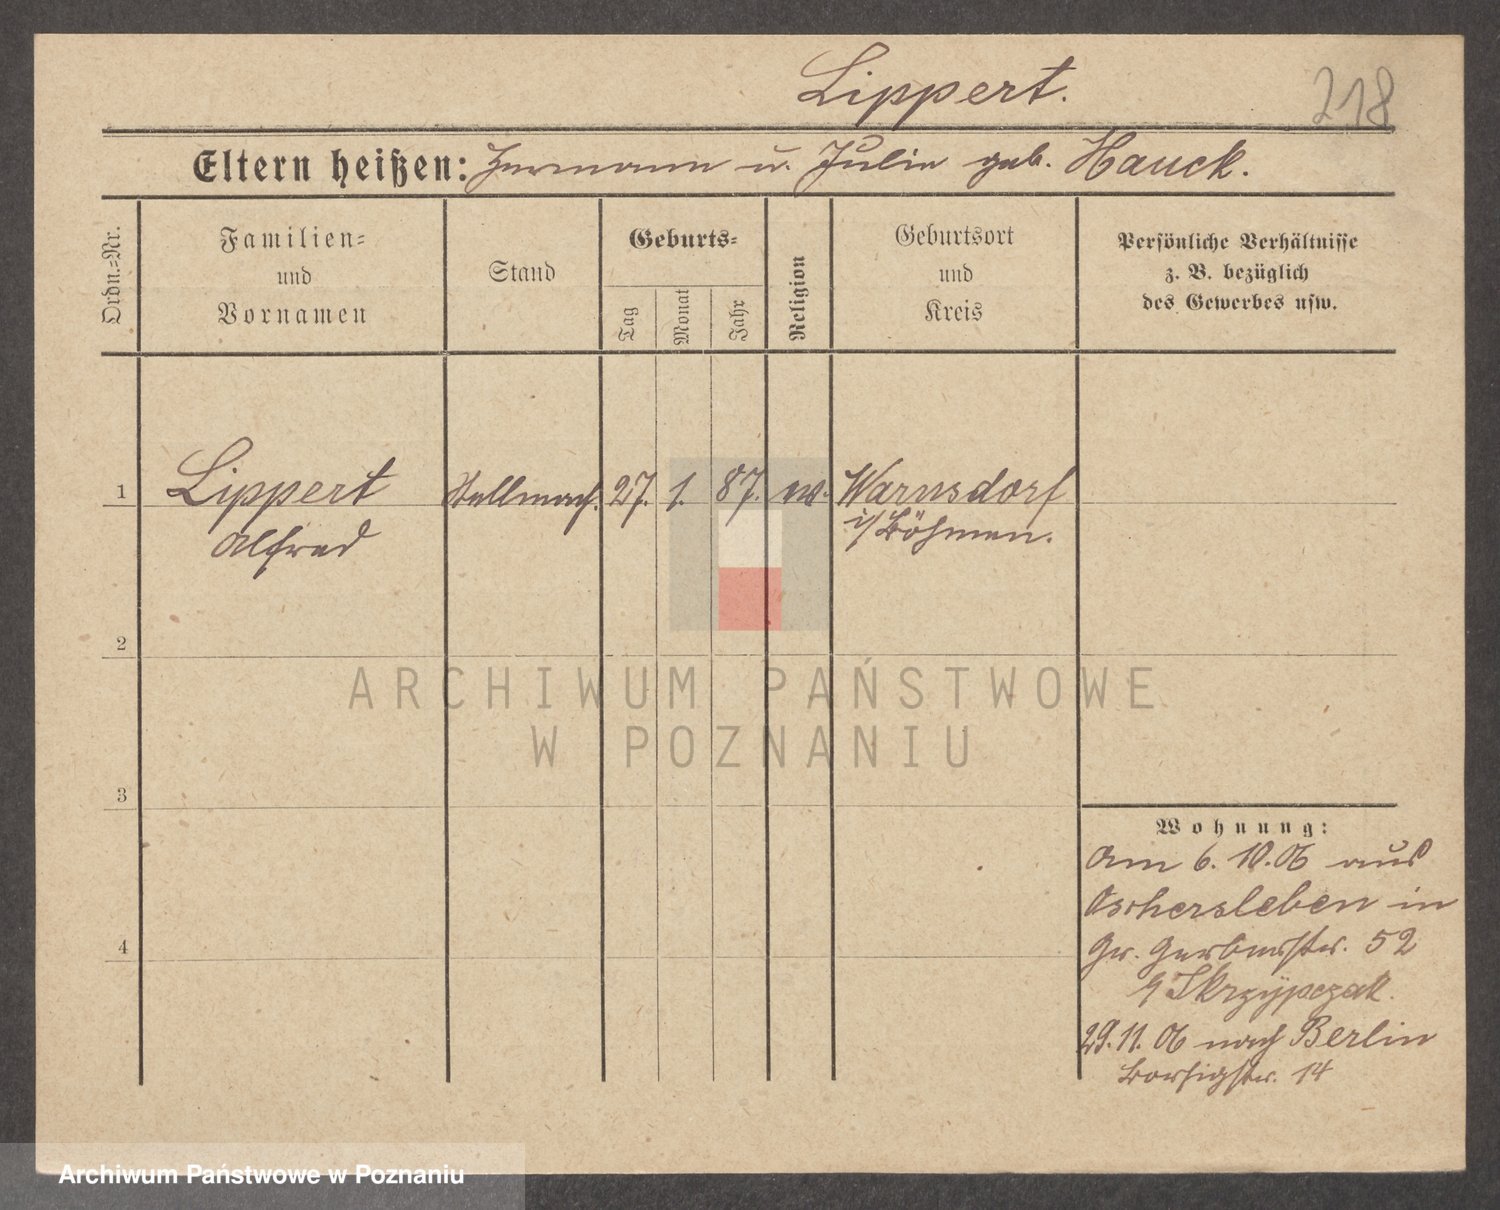 Lippert.
218
Eltern heißen: Hermann u. Julie geb. Hauck.
Ordn.=Nr.
Familien=
und
Vornamen
Stand
Geburts=
Tag
Monat
Jahr
Religion
Geburtsort
und
Kreis
Persönliche Verhältnisse
z. B. bezüglich
des Gewerbes usw.
1
Lippert
Alfred
Stellmach.
27.
1.
87.
Warnsdorf
i/Böhmen.
2
3
4
Wohnung:
Am 6. 10. 06 aus
Aschersleben in
Gr. Gerberstr. 52
Skrzypczak.
29. 11. 06 nach Berlin
Borsigstr. 14
ARCHIWUM PAŃSTWOWE
W POZNANIU
Archiwum Państwowe w Poznaniu